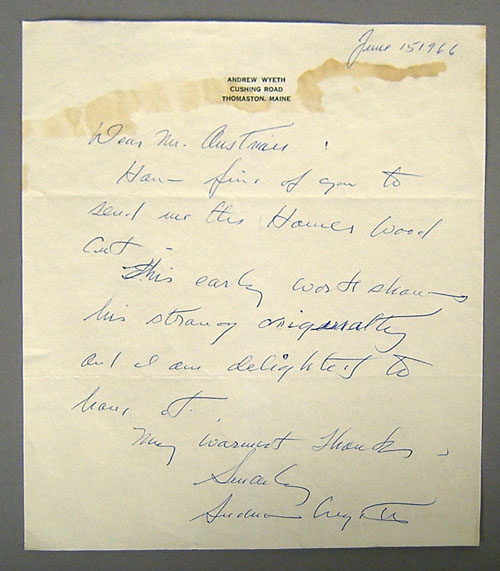 June 15 1966
ANDREW WYETH
CUSHING ROAD
THOMASTON, MAINE
Dear Mr.
How fine of you to
send me this Homer wood
cut –
This early work shows
his strong originality
and I am delighted to
have it.
My warmest thanks,
Sincerely
Andrew Wyeth